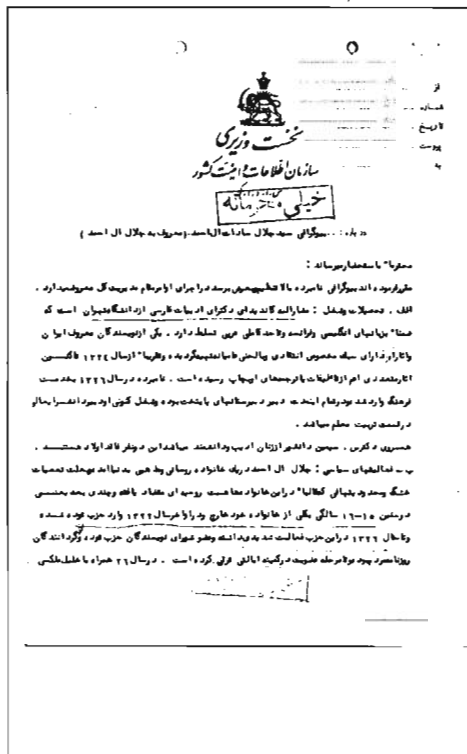 از
شماره
تاریخ
پیوست
به
نخست وزیری
سازمان اطلاعات و امنیت کشور
خیلی محرمانه
درباره : . . بیوگرافی سید جلال سادات ال احمد . ( معروف به جلال ال احمد )
محترما" باستحضار میرساند :
مقرر فرموده اند بیوگرافی نامبرده بالا تنظیم بعرض برسد در اجرای اوامر مقام مدیریت کل معروض میدارد .
الف . تحصیلات و شغل : مشارالیه کاندیدای دکترای ادبیات فارسی از دانشگاه تهران است که
ضمنا" بزبانهای انگلیسی و فرانسه و تا حد کاملی عربی تسلط دارد . یکی از نویسندگان معروف ایران
و اثار او دارای سبک مخصوص انتقادی و تقریبا" از سال ۱۳۲۴ تاکنون
اثار متعددی اعم از تالیفات یا ترجمه های ایشان بچاپ رسیده است . نامبرده در سال ۱۳۲۶ بخدمت
فرهنگ وارد شد و در مقام دبیر دبیرستانهای پایتخت بوده و شغل کنونی او دبیر دانشسرایعالی و
در قسمت تربیت معلم میباشد .
همسر وی دکتر س . سیمین دانشور از زنان ادیب و دانشمند میباشد این دو نفر فاقد اولاد هستند .
ب - فعالیتهای سیاسی : جلال ال احمد در یک خانواده روحانی و مذهبی بدنیا آمد بعلت تعصبات
خشک و محدودیتهای در این خانواده روحیه ای متضاد یافته و چندی بعد یعنی
در سنین ۱۵-۱۶ سالگی بکلی از خانواده خود خارج و در اواخر سال ۱۳۲۲ وارد حزب توده شده
و تا سال ۱۳۲۶ در این حزب فعالیت شدیدی داشته و عضو شورای نویسندگان حزب توده و گردانندگان
روزنامه مردم بود و تا مرحله عضویت در کمیته ایالتی ترقی کرده است . در سال ۲۶ همراه با خلیل ملکی